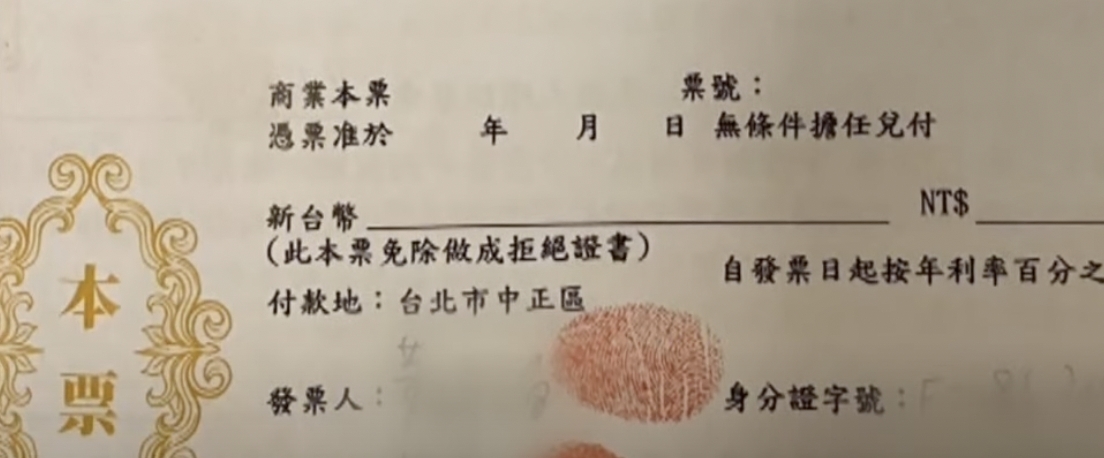 商業本票 票號：
憑票准於 年 月 日 無條件擔任兌付
新台幣 NT$
(此本票免除做成拒絕證書)
自發票日起按年利率百分之
付款地：台北市中正區
發票人： 身分證字號：
本票